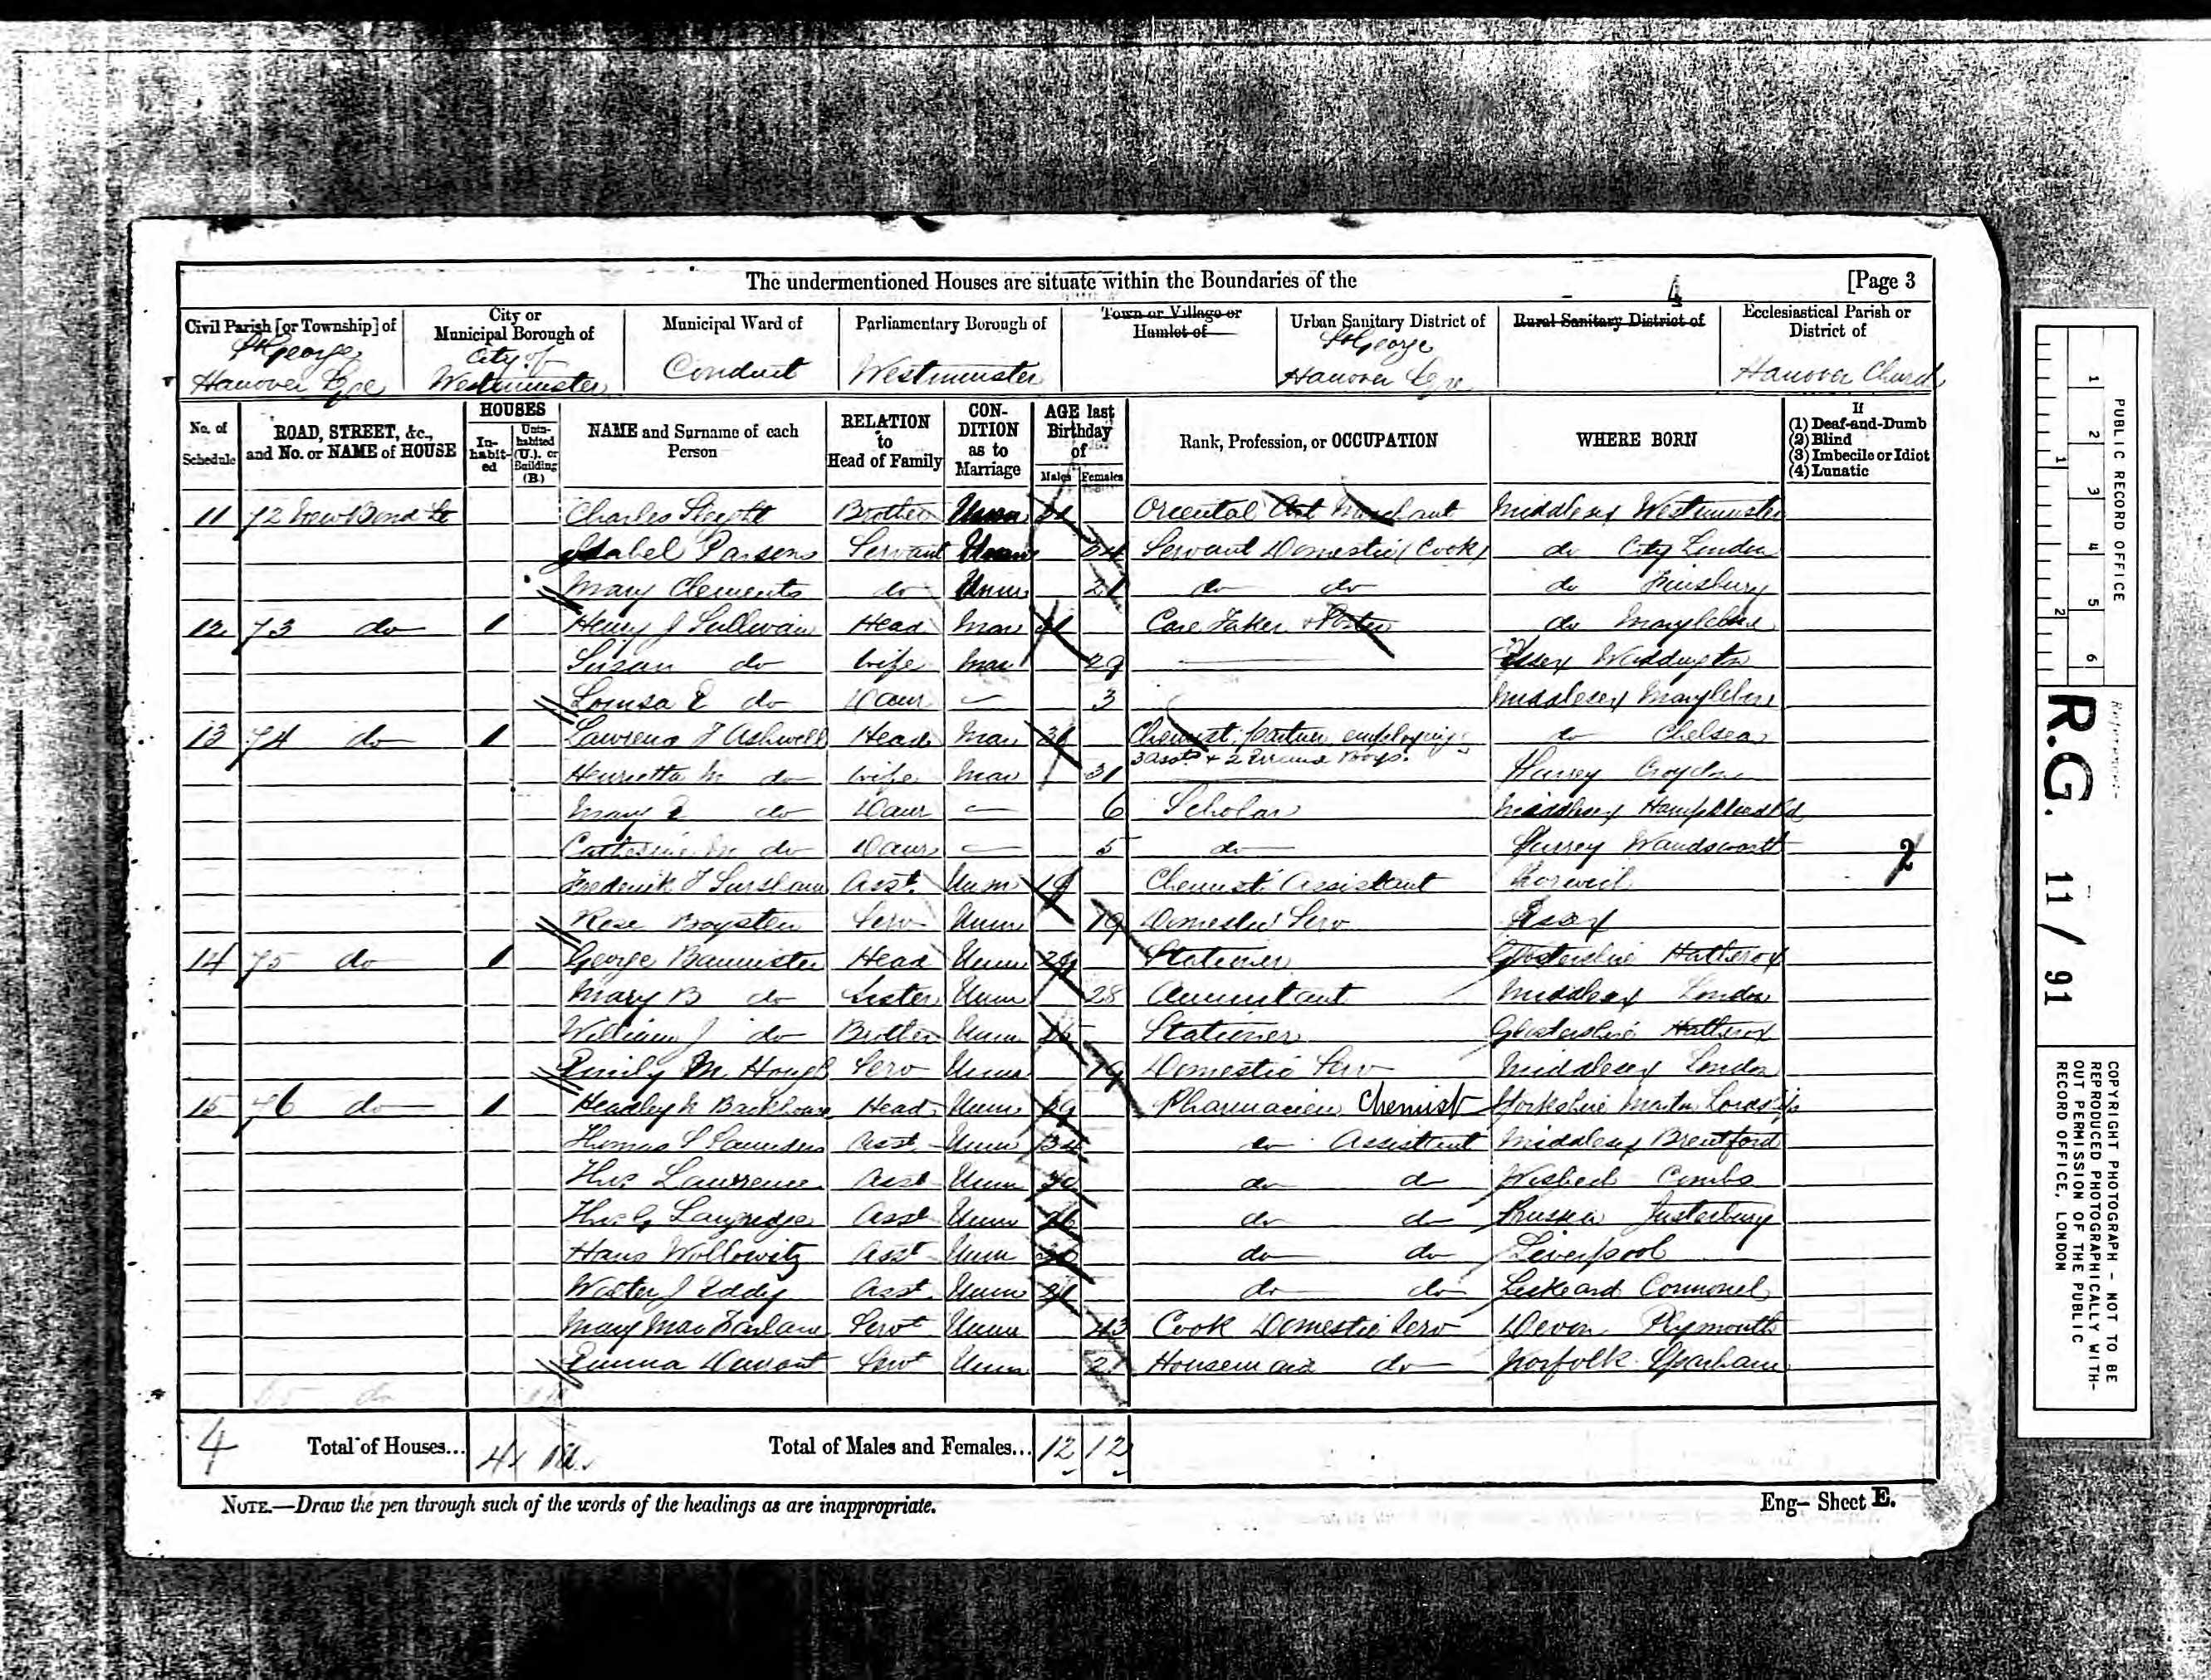 The undermentioned Houses are situate within the Boundaries of the
4
[Page 3
Civil Parish [or Township] of St George Hanover Sqre
City or Municipal Borough of City of Westminster
Municipal Ward of Conduit
Parliamentary Borough of Westminster
Town or Village or Hamlet of
Urban Sanitary District of St George Hanover Sqre
Rural Sanitary District of
Ecclesiastical Parish or District of Hanover Church
No. of Schedule
ROAD, STREET, &c., and No. or NAME of HOUSE
HOUSES
In-habit-ed
Unin-habited (U.), or Building (B.)
NAME and Surname of each Person
RELATION to Head of Family
CON-DITION as to Marriage
AGE last Birthday of
Males
Females
Rank, Profession, or OCCUPATION
WHERE BORN
If
(1) Deaf-and-Dumb
(2) Blind
(3) Imbecile or Idiot
(4) Lunatic
11 72 New Bond St Charles Brother Unm Oriental Art Merchant Middlesex Westminster
Isabel Parsons Servant Unm 24 Servant Domestic (Cook) do City London
Mary Clements do Unm 21 do do do Finsbury
12 73 do 1 Henry J Sullivan Head Mar 31 Care Taker + Porter do Marylebone
Susan do Wife Mar 29 Essex Waddington
Louisa E do Daur 3 Middlesex Marylebone
13 74 do 1 Lawrence T Ashwell Head Mar 31 Chemist, partner, employing do Chelsea
3 assts + 2 Errand Boys.
Henrietta M do Wife Mar 31 Surrey Croydon
Mary E do Daur 6 Scholar Middlesex Hampstead Rd
Catherine M do Daur 5 do Surrey Wandsworth
Frederick T Asst. Unm 19 Chemist Assistant Norwich
2
Rose Boysten Serv Unm 19 Domestic Serv Essex
14 75 do 1 George Bannister Head Unm 29 Stationer
Mary B do Sister Unm 28 Accountant Middlesex London
William J do Brother Unm Stationer
Emily M Serv Unm 19 Domestic Serv Middlesex London
15 76 do 1 Headley N Backhouse Head Unm 29 Chemist Yorkshire
Thomas S Saunders Asst Unm do Assistant Middlesex Brentford
Lawrence Asst Unm do do Wisbech Cambs
Asst Unm 26 do do Prussia
Hans Wollowitz Asst Unm do do Liverpool
Walter J Eddy Asst Unm 21 do do Liskeard
Mary MacFarlane Servt Unm 43 Cook Domestic Serv Devon Plymouth
Emma Durrant Servt Unm 21 Housemaid do Norfolk Sparham
4 Total of Houses... 4
Total of Males and Females... 12 12
NOTE.—Draw the pen through such of the words of the headings as are inappropriate.
Eng— Sheet E.
PUBLIC RECORD OFFICE
1 2 3 4 5 6
1 2
Reference:-
R.G. 11 / 91
COPYRIGHT PHOTOGRAPH - NOT TO BE
REPRODUCED PHOTOGRAPHICALLY WITH-
OUT PERMISSION OF THE PUBLIC
RECORD OFFICE, LONDON